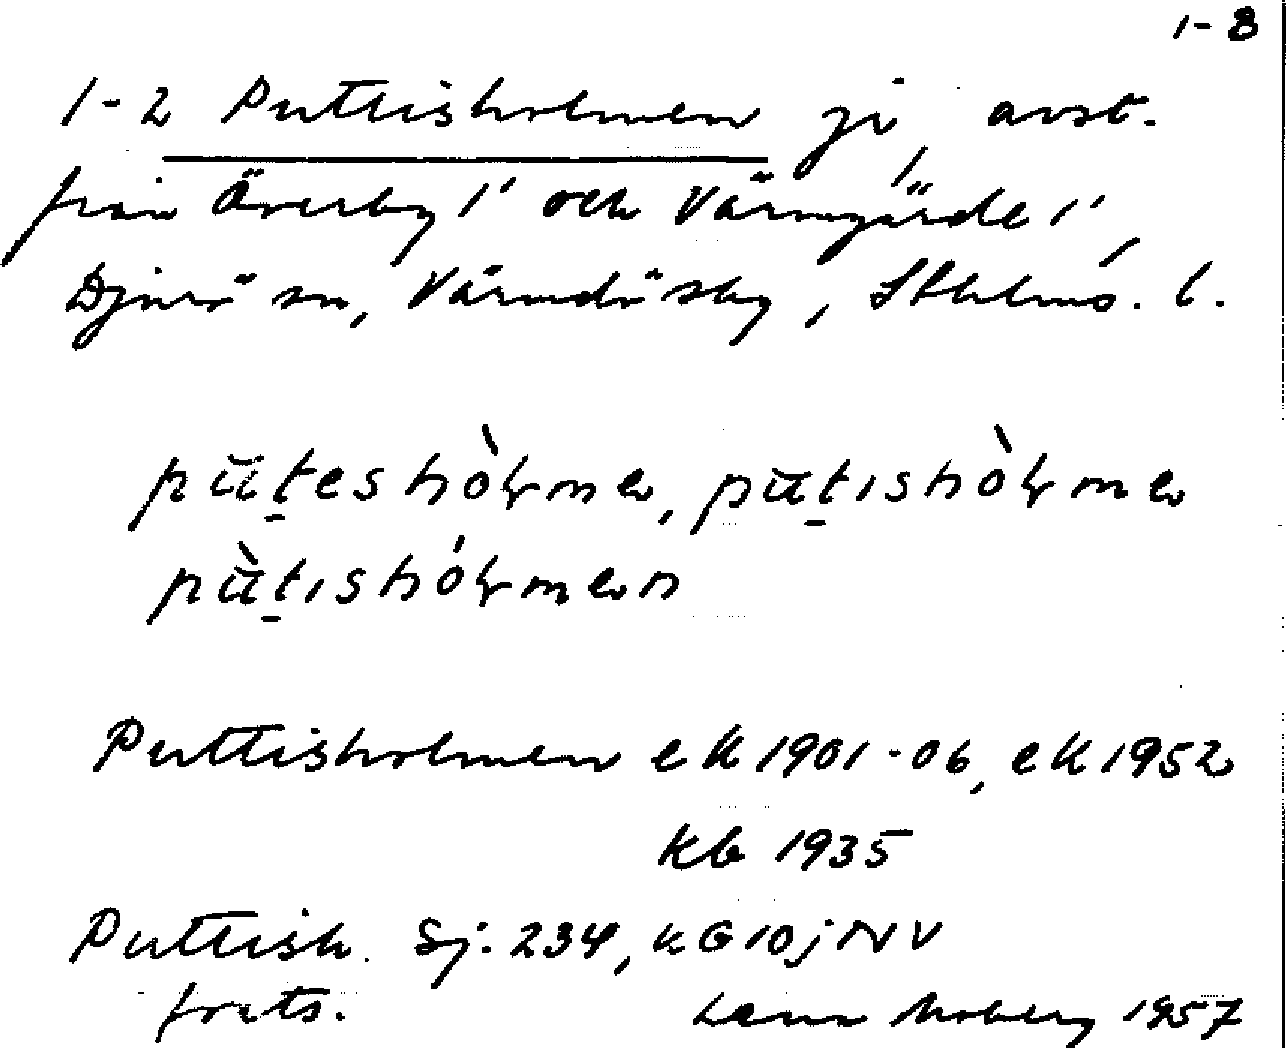 1-3
1-2 Puttisholmen ji, avst.
från Överby 1' och Värmgärde 1',
Djurö sn, Värmdö sky, Sthlms. l.
pu̇̄t̠eshòl̩me, pu̇̄t̠ıshòl̩me
pù̄t̠ıshól̩men
Puttisholmen ek 1901-06, ek 1952
kb 1935
Puttish. Sj. 234, kG10jNV
forts. Lena Moberg 1957